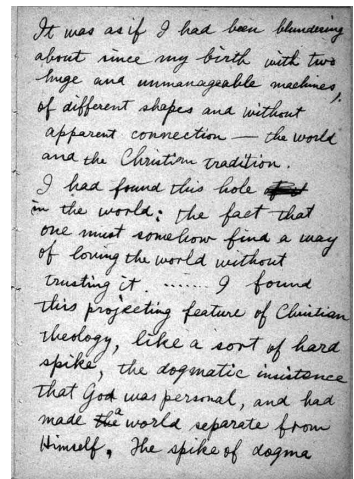 It was as if I had been blundering
about since my birth with two
huge and unmanageable machines,
of different shapes and without
apparent connection — the world
and the Christian tradition.
I had found this hole
in the world: the fact that
one must somehow find a way
of loving the world without
trusting it. ....... I found
this projecting feature of Christian
theology, like a sort of hard
spike, the dogmatic insistence
that God was personal, and had
made a world separate from
Himself, The spike of dogma